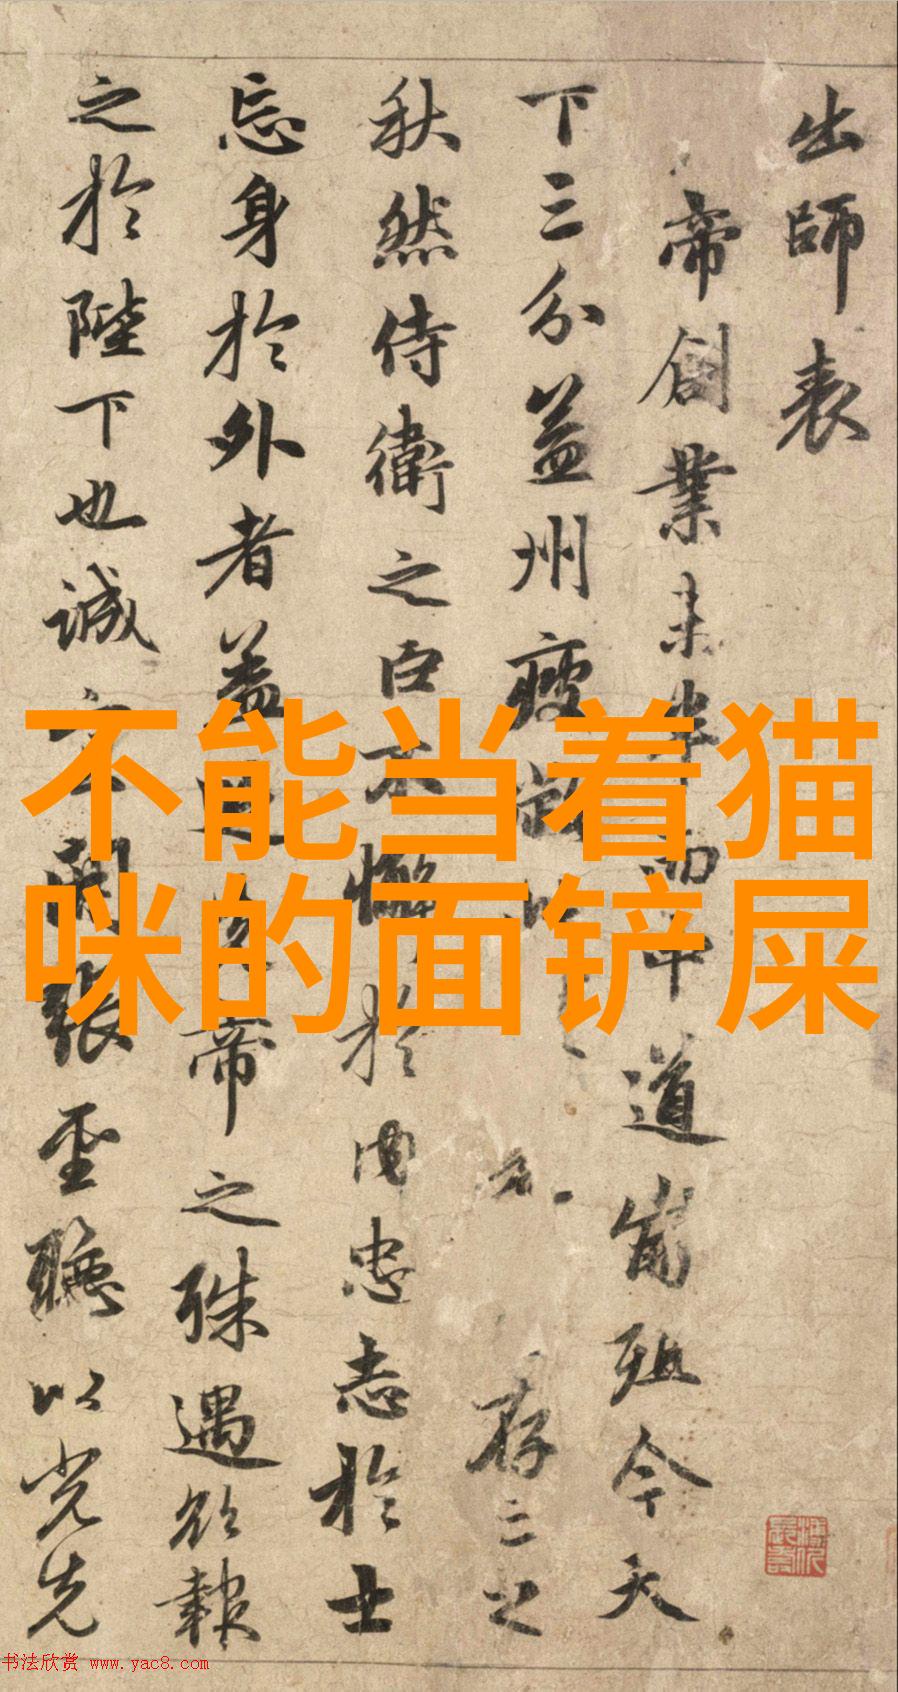 不能当着猫
咪的面铲屎
出師表
帝創業未半而中道崩殂今天
下三分益州疲敝此存之
秋然侍衛之臣不懈於内忠志於士
忘身於外者蓋追先帝之殊遇欲報
之於陛下也誠宜開張聖聽以光先
书法欣赏 www.yac8.com